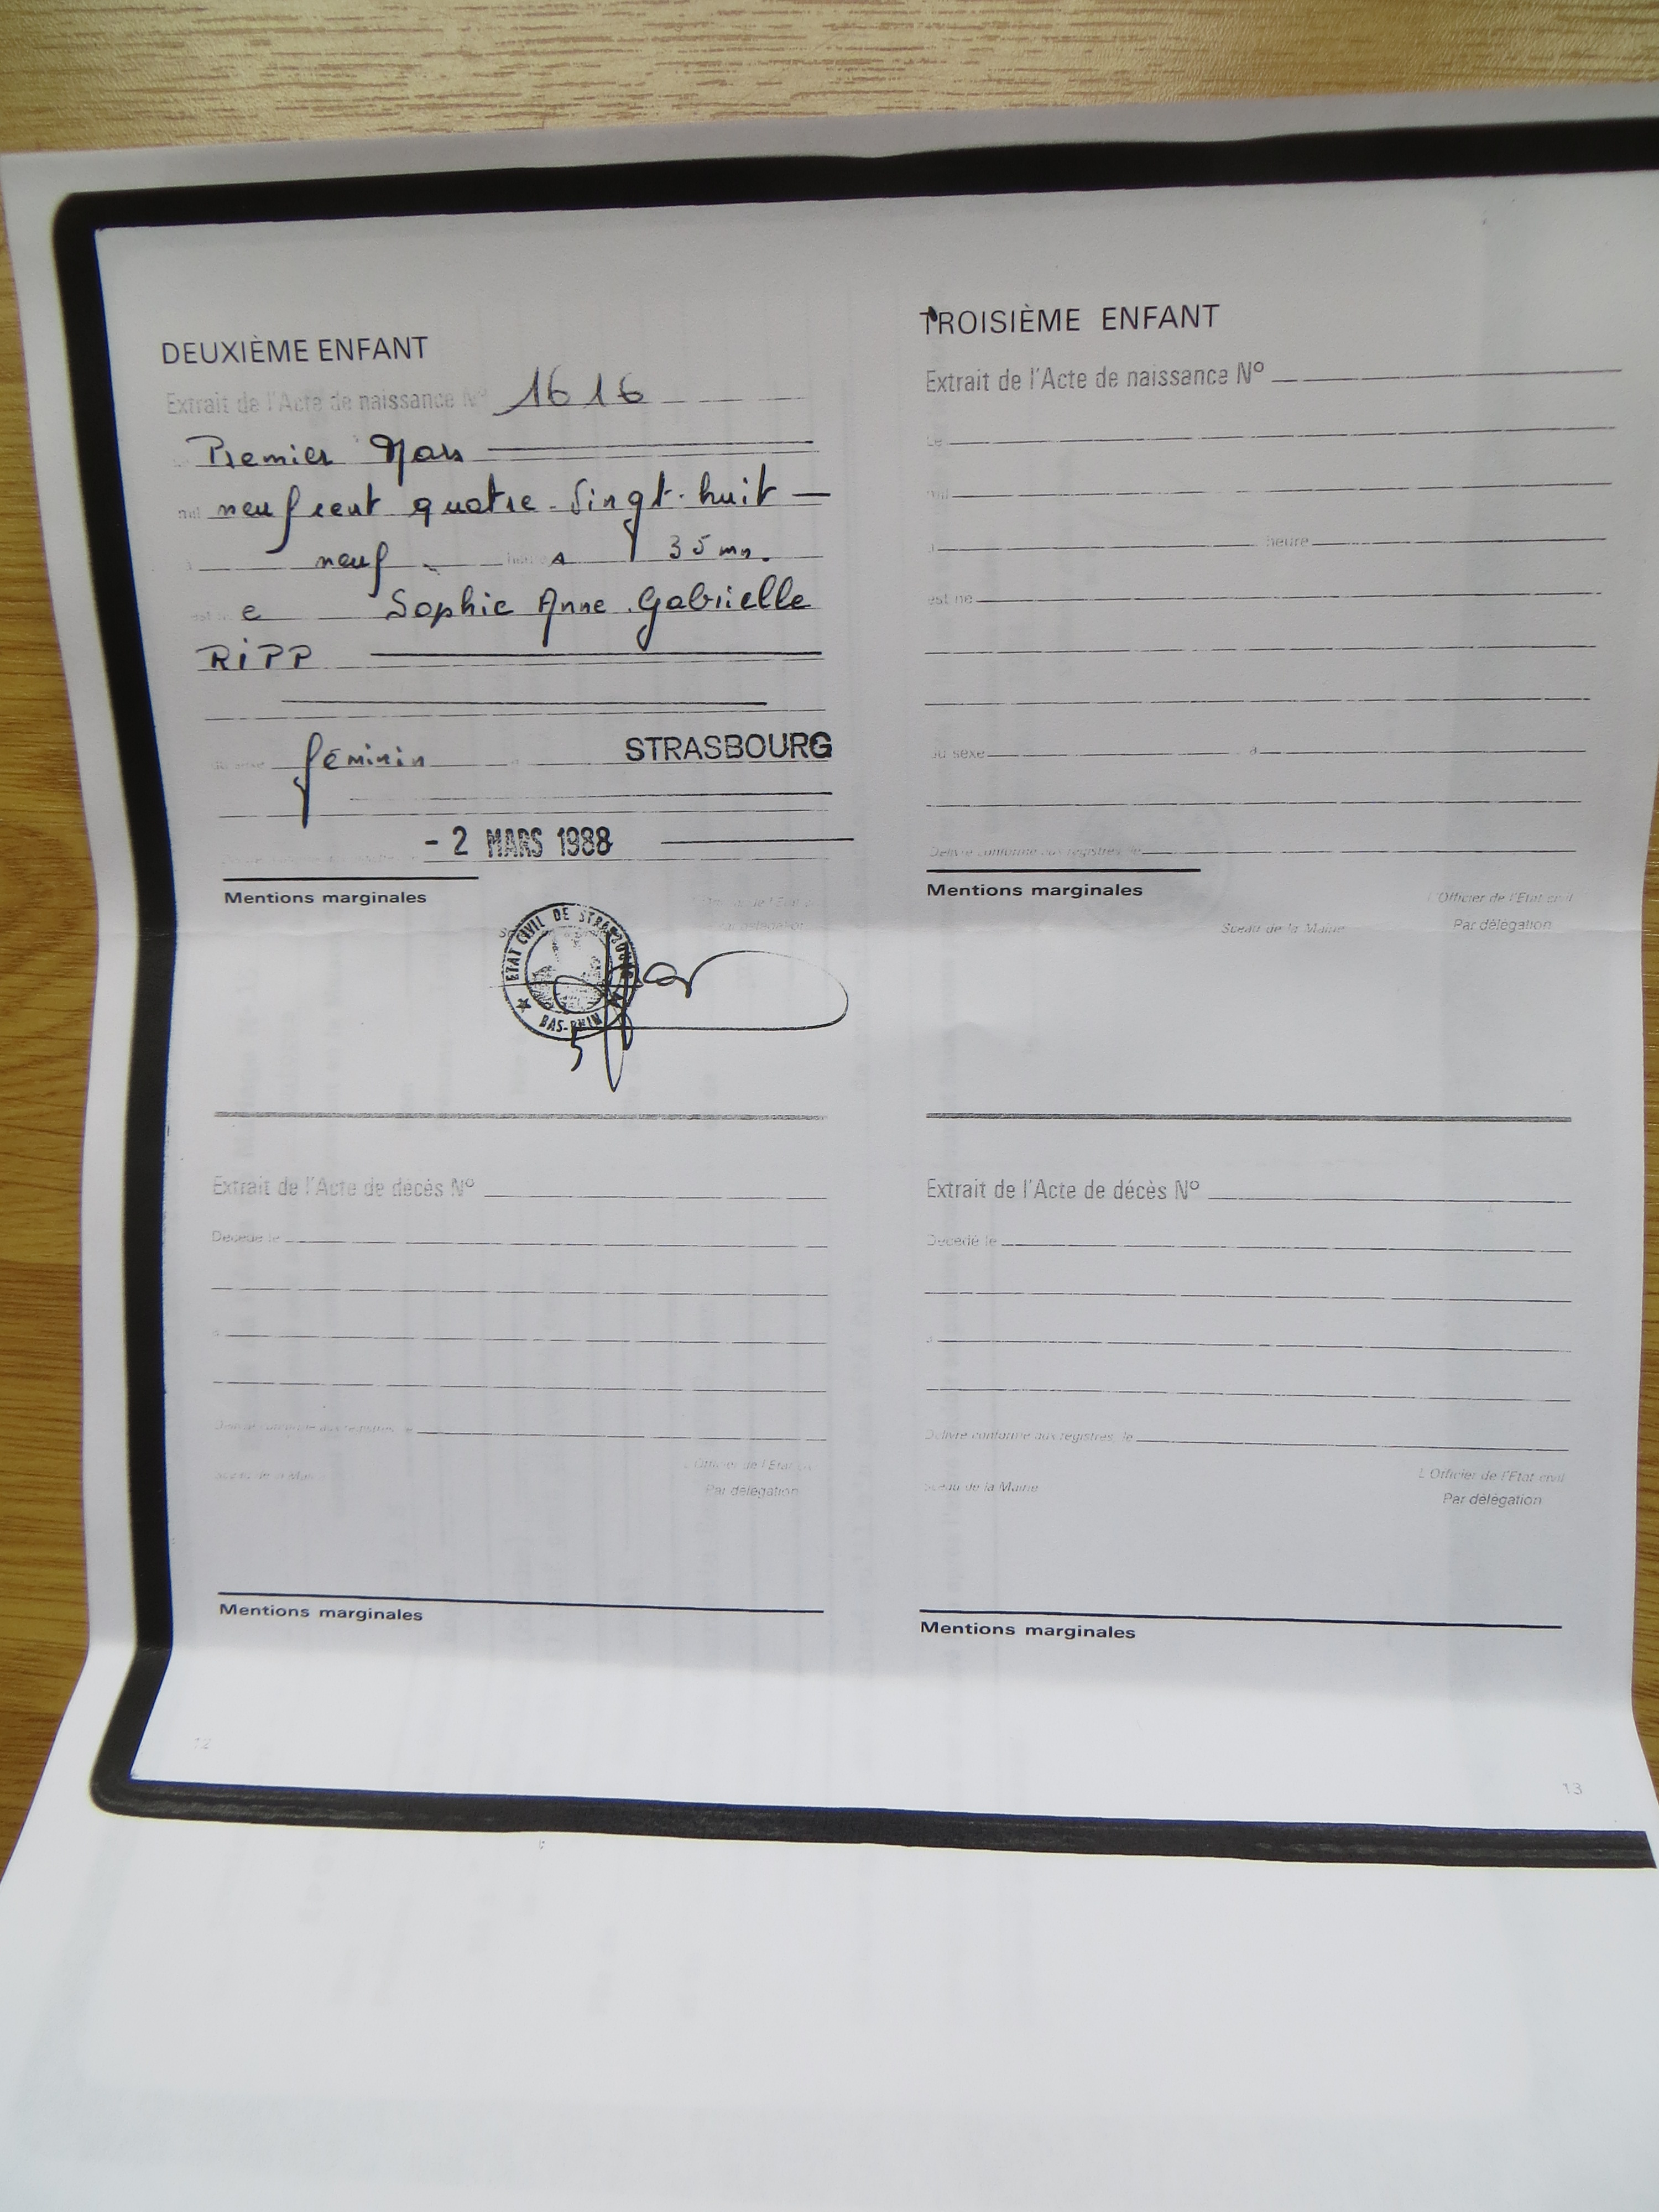 DEUXIÈME ENFANT
Extrait de l'Acte de naissance Nº 1616
Premier Mars
mil neuf cent quatre-vingt-huit
à neuf heures 35 mn.
est né e Sophie Anne Gabrielle
RIPP
du sexe féminin à STRASBOURG
Délivré conforme aux registres, le - 2 MARS 1988
Mentions marginales
L'Officier de l'Etat civil
Par délégation
ETAT CIVIL DE STRASBOURG
BAS-RHIN
Extrait de l'Acte de décès Nº
Décédé le
à
Délivré conforme aux registres, le
Sceau de la Mairie
L'Officier de l'Etat civil
Par délégation
Mentions marginales
12
TROISIÈME ENFANT
Extrait de l'Acte de naissance Nº
Le
mil
à heure
est né
du sexe à
Délivré conforme aux registres, le
Mentions marginales
L'Officier de l'Etat civil
Sceau de la Mairie
Par délégation
Extrait de l'Acte de décès Nº
Décédé le
à
Délivré conforme aux registres, le
L'Officier de l'Etat civil
Sceau de la Mairie
Par délégation
Mentions marginales
13